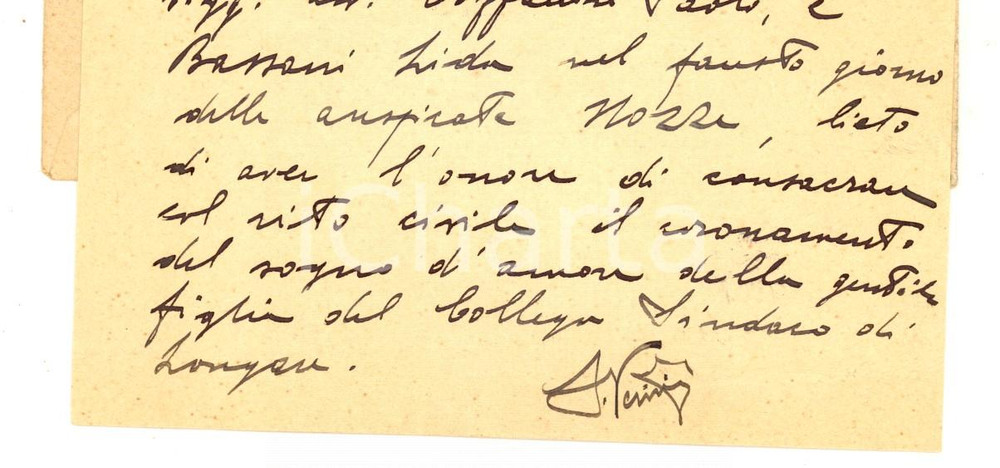 Bassani Lida nel fausto giorno
delle auspicate Nozze, lieto
di aver l'onore di consacrare
col rito civile il coronamento
del sogno d'amore della gentile
figlia del Collega Sindaco di
Longare.
iCharta